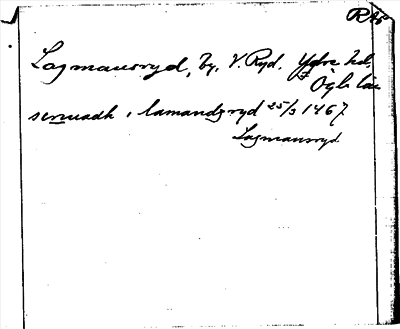 RAp
Lagmansryd, by, V. Ryd. Ydre hd,
Ögl. län
sennadh i lamandzryd 25/3 1467
Lagmansryd